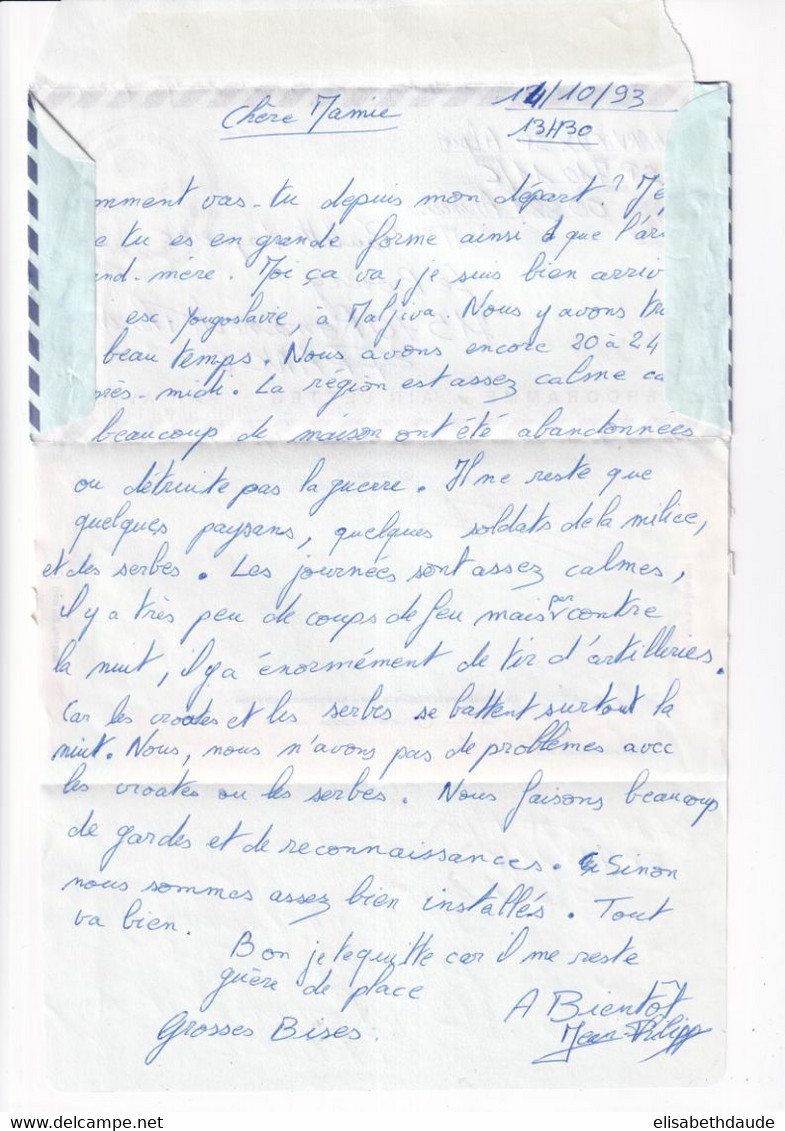 11/10/93
Chère Mamie
13H30
mment vas-tu depuis mon départ?
e tu es en grande forme ainsi que l'ar
nd-mère. Moi ça va, je suis bien arriv
esc-Yougoslavie, à Maljiva. Nous y avons
beau temps. Nous avons encore 20 à 24
rès-midi. La région est assez calme ca
beaucoup de maison ont été abandonnées
ou détruite pas la guerre. Il ne reste que
quelques paysans, quelques soldats de la milice,
et des serbes. Les journées sont assez calmes,
il y a très peu de coups de feu mais par contre
la nuit, il y a énormément de tir d'artilleries.
Car les croates et les serbes se battent surtout la
nuit. Nous, nous n'avons pas de problèmes avec
les croates ou les serbes. Nous faisons beaucoup
de gardes et de reconnaissances. Sinon
nous sommes assez bien installés. Tout
va bien.
Bon je te quitte car il me reste
guère de place
A Bientôt
Grosses Bises
Jean-Philipp
elisabethdaude